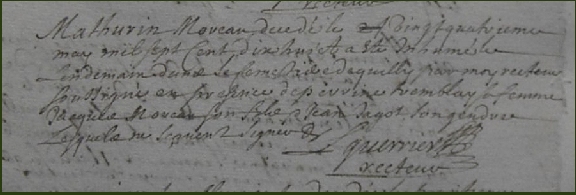 Mathurin Moreau decedé le vingt quatrieme
may mil sept Cent dix huict a esté Inhumé le
lendemain dans le Cimetiere par moy recteur
soussigné en presence de perrine tremblay sa femme
Jacque Moreau son fils & Jean son gendre
lesquels ne scavent signer
Guerrier
recteur